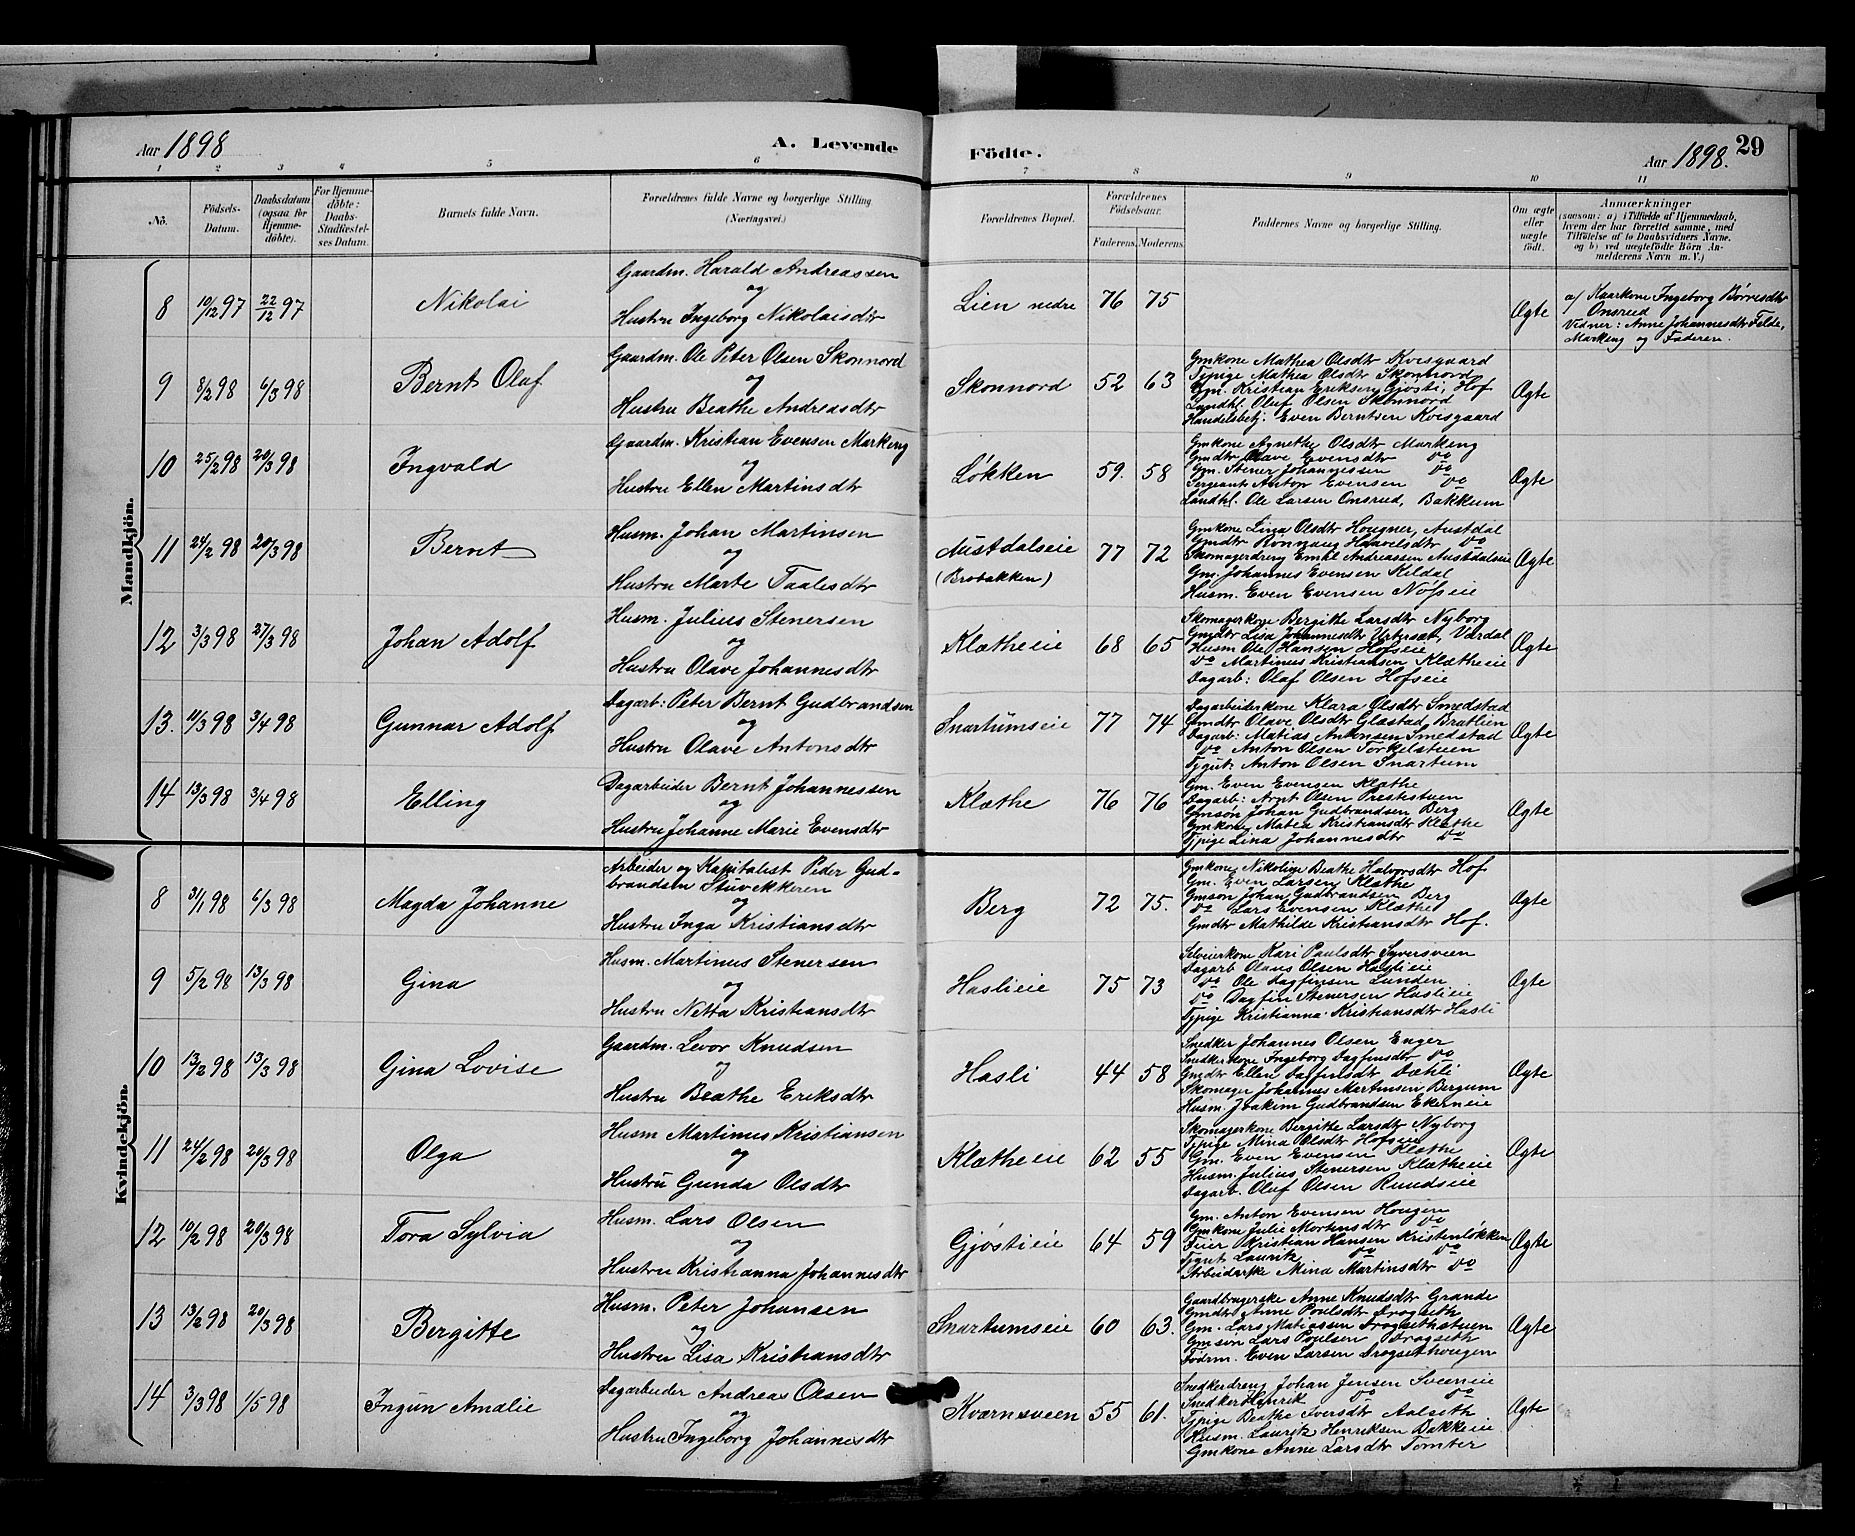 Aar 1898
A. Levende
Födte.
Aar 1898.
29
1 2 3 4 5 6 7 8 9 10 11
No.
Födsels-
Datum.
Daabsdatum
(ogsaa for
Hjemme-
döbte).
For Hjemme-
döbte:
Daabs-
Stadfæstel-
ses Datum.
Barnets fulde Navn.
Forældrenes fulde Navne og borgerlige Stilling
(Næringsvei.)
Forældrenes Bopæl.
Forældrenes
Födselsaar.
Faderens. Moderens.
Faddernes Navne og borgerlige Stilling.
Om ægte
eller
uægte
födt.
Anmærkninger
(saasom: a) i Tilfælde af Hjemmedaab,
hvem der har forrettet samme, med
Tilföielse af to Daabsvidners Navne.
og b) ved uægtefödte Börn An-
melderens Navn m. V.)
Mandkjön.
8 10/12 97 22/12 97 Nikolai
Gaardm. Harald Andreassen
og
Hustru Ingeborg Nikolaisdtr
Lien nedre 76 75
Ægte
a/ Kaarkone Ingeborg Børresdtr
Onsrud
Vidner: Anne Johannesdtr Felde,
Markeng og Faderen.
9 8/2 98 6/3 98 Bernt Olaf
Gaardm. Ole Peter Olsen Skonnord
og
Hustru Beathe Andreasdtr
Skonnord 52 63
Gmkone Mathea Olsdtr Kvisgaard
Tjpige Mathea Olsdtr Skonnord
Gm. Kristian Eriksen Gjøsti, Hof
Landhl. Oluf Olsen Skonnord
Handelsbetj. Even Berntsen Kvisgaard
Ægte
10 25/2 98 20/3 98 Ingvald
Gaardm. Kristian Evensen Markeng
og
Hustru Ellen Martinsdtr
Løkken 59. 58
Gmkone Agnethe Olsdtr Markeng
Gmdtr Olave Evensdtr do
Gm. Stener Johannessen do
Sergeant Anton Evensen do
Landhl. Ole Larsen Onsrud, Bakkum
Ægte
11 24/2 98 20/3 98 Bernt
Husm. Johan Martinsen
og
Hustru Marte Taalesdtr
Austdalseie
(Brobakken)
77 72
Gmkone Lina Olsdtr Hougner, Austdal
Gmdtr Rønnaug Haavelsdtr do
Skomagerdreng Emil Andreassen Austdalseie
Gm. Johannes Evensen Kildal
Husm. Even Evensen Nøsseie
Ægte
12 3/3 98 27/3 98 Johan Adolf
Husm. Julius Stenersen
og
Hustru Olave Johannesdtr
Klætheeie 68 65
Skomagerkone Bergithe Larsdtr Nyborg
Gmdtr Lisa Johannesdtr Urtersæt, Vardal
Husm Ole Hansen Hofseie
do Martinus Kristiansen Klætheeie
Dagarb: Olaf Olsen Hofseie
Ægte
13. 11/3 98 3/4 98 Gunnar Adolf
Dagarb: Peter Bernt Gudbrandsen
og
Hustru Olave Antonsdtr
Snartumseie 77 74
Dagarbeiderkone Klara Olsdtr Smedstad
Gmdtr Olave Olsdtr Glæstad, Bratlien
Dagarb: Matias Antonsen Smedstad
do Anton Olsen Torkelstuen
Tjgut Anton Olsen Snartum
Ægte
14 13/3 98 3/4 98 Elling
Dagarbeider Bernt Johannessen
og
Hustru Johanne Marie Evensdtr
Klæthe 76 76
Gm. Even Evensen Klæthe
Dagarb: Arnt Olsen Prestestuen
Gmsøn Johan Gudbrandsen Berg
Gmkone Matea Kristiansdtr Klæthe
Tjpige Lina Johannesdtr do
Ægte
Kvindekjön.
8 31/1 98 6/3 98 Magda Johanne
Arbeider og Kapitalist Peder Gud-
brandsen Stuvekkeren
og
Hustru Inga Kristiansdtr
Berg 72 75.
Gmkone Nikoline Beathe Halvorsdtr Hof
Gm. Even Larsen Klæthe
Gmsøn Johan Gudbrandsen Berg
do Lars Evensen Klæthe
Gmdtr Mathilde Kristiansdtr Hof.
Ægte
9 5/2 98 13/3 98 Gina
Husm. Martinus Stenersen
og
Hustru Netta Kristiansdtr
Haslieie 75 73
Selveierkone Kari Paulsdtr Syversveen
Dagarb Olaus Olsen Haslieie
do Ole Dagfinsen Lunden
do Dagfin Stenersen Haslieie
Tjpige Kristianna Kristiansdtr Hasli
Ægte
10 13/2 98 13/3 98 Gina Lovise
Gaardm. Levor Knudsen
og
Hustru Beathe Eriksdtr
Hasli 44 58
Snedker Johannes Olsen Enger
Snedkerkone Ingeborg Dagfinsdtr do
Gmdtr Ellen Dagfinsdtr Dæhli
Skomager Johannes Martinsen Bergum
Husm. Joakim Gudbrandsen Ekerneie
Ægte
11 24/2 98 20/3 98 Olga
Husm Martinus Kristiansen
og
Hustru Gunda Olsdtr
Klætheeie 62 55
Skomagerkone Bergitte Larsdtr Nyborg
Tjpige Mina Olsdtr Hofseie
Gm. Even Evensen Klæthe
Husm. Julius Stenersen Klætheeie
Dagarb. Oluf Olsen Rundseie
Ægte
12 10/2 98 20/3 98 Tora Sylvia
Husm. Lars Olsen
og
Hustru Kristianna Johannesdtr
Gjøstieie 64 59
Gm. Anton Evensen Hougen
Gmkone Julie Mortensdtr do
Feier Kristian Hansen Kristenløkken
Tjgut Lauritz do do
Arbeiderske Mina Martinsdtr do
Ægte
13 13/2 98 20/3 98 Bergitte
Husm. Peter Johansen
og
Hustru Lisa Kristiansdtr
Snartumseie 60 63.
Gaardbrugerske Anne Knudsdtr Grande
Gmdtr Anne Poulsdtr Drogseth
Gm. Lars Matiassen Drogsethstuen
Gmsøn Lars Poulsen Drogseth
Födrm. Even Larsen Drogsethougen
Ægte
14 3/3 98 1/5 98 Ingun Amalie
Dagarbeider Andreas Olsen
og
Hustru Ingeborg Johannesdtr
Kværnsveen 55 61.
Snedkerdreng Johan Jensen Sveeneie
Snedker Henrik do do
Tjpige Beathe Iversdtr Aalseth
Husm. Lauritz Henriksen Bakkeie
Gmkone Anne Larsdtr Tomter
Ægte